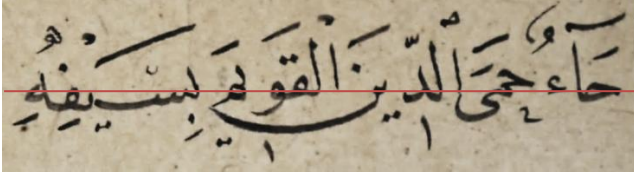 حَآءُ حِمَى ٱلدِّينَ الْقَوَيمَ بِسَيْفِهِ